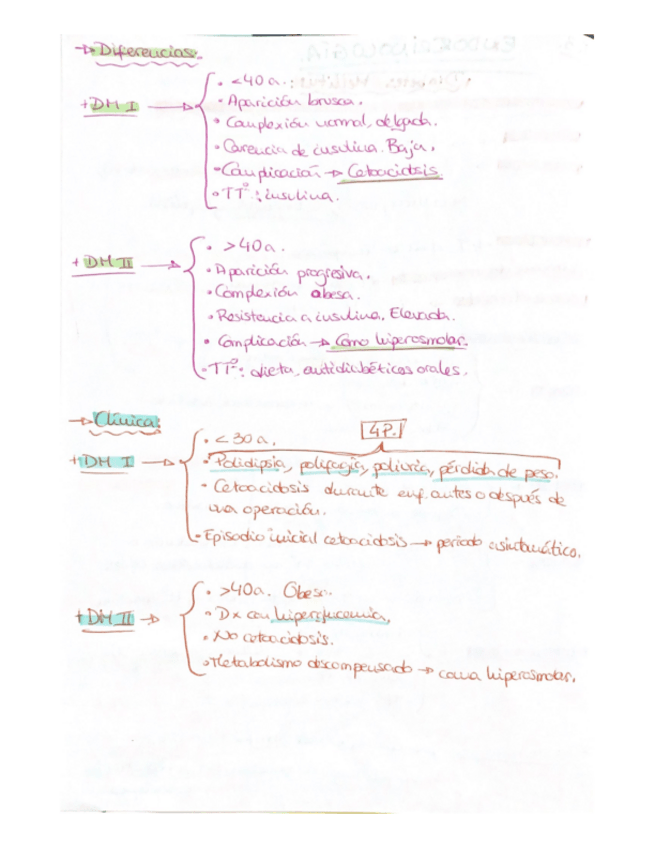 → Diferencias.
+ DM I →
• <40 a.:
• Aparición brusca.
• Complexión normal, delgada.
• Carencia de insulina. Baja.
• Complicación → Cetoacidosis.
• TTº: insulina.
+ DM II →
• >40 a.
• Aparición progresiva.
• Complexión obesa.
• Resistencia a insulina. Elevada.
• Complicación → Coma hiperosmolar.
• TTº: dieta, antidiabéticos orales.
→ Clínica:
4P.
+ DM I →
• <30 a.
• Polidipsia, polifagia, poliuria, pérdida de peso.
• Cetoacidosis durante enf. antes o después de
una operación.
• Episodio inicial cetoacidosis → periodo asintomático.
+ DM II →
• >40 a. Obeso.
• Dx con hiperglucemia,
• No cetoacidosis.
• Metabolismo descompensado → coma hiperosmolar.